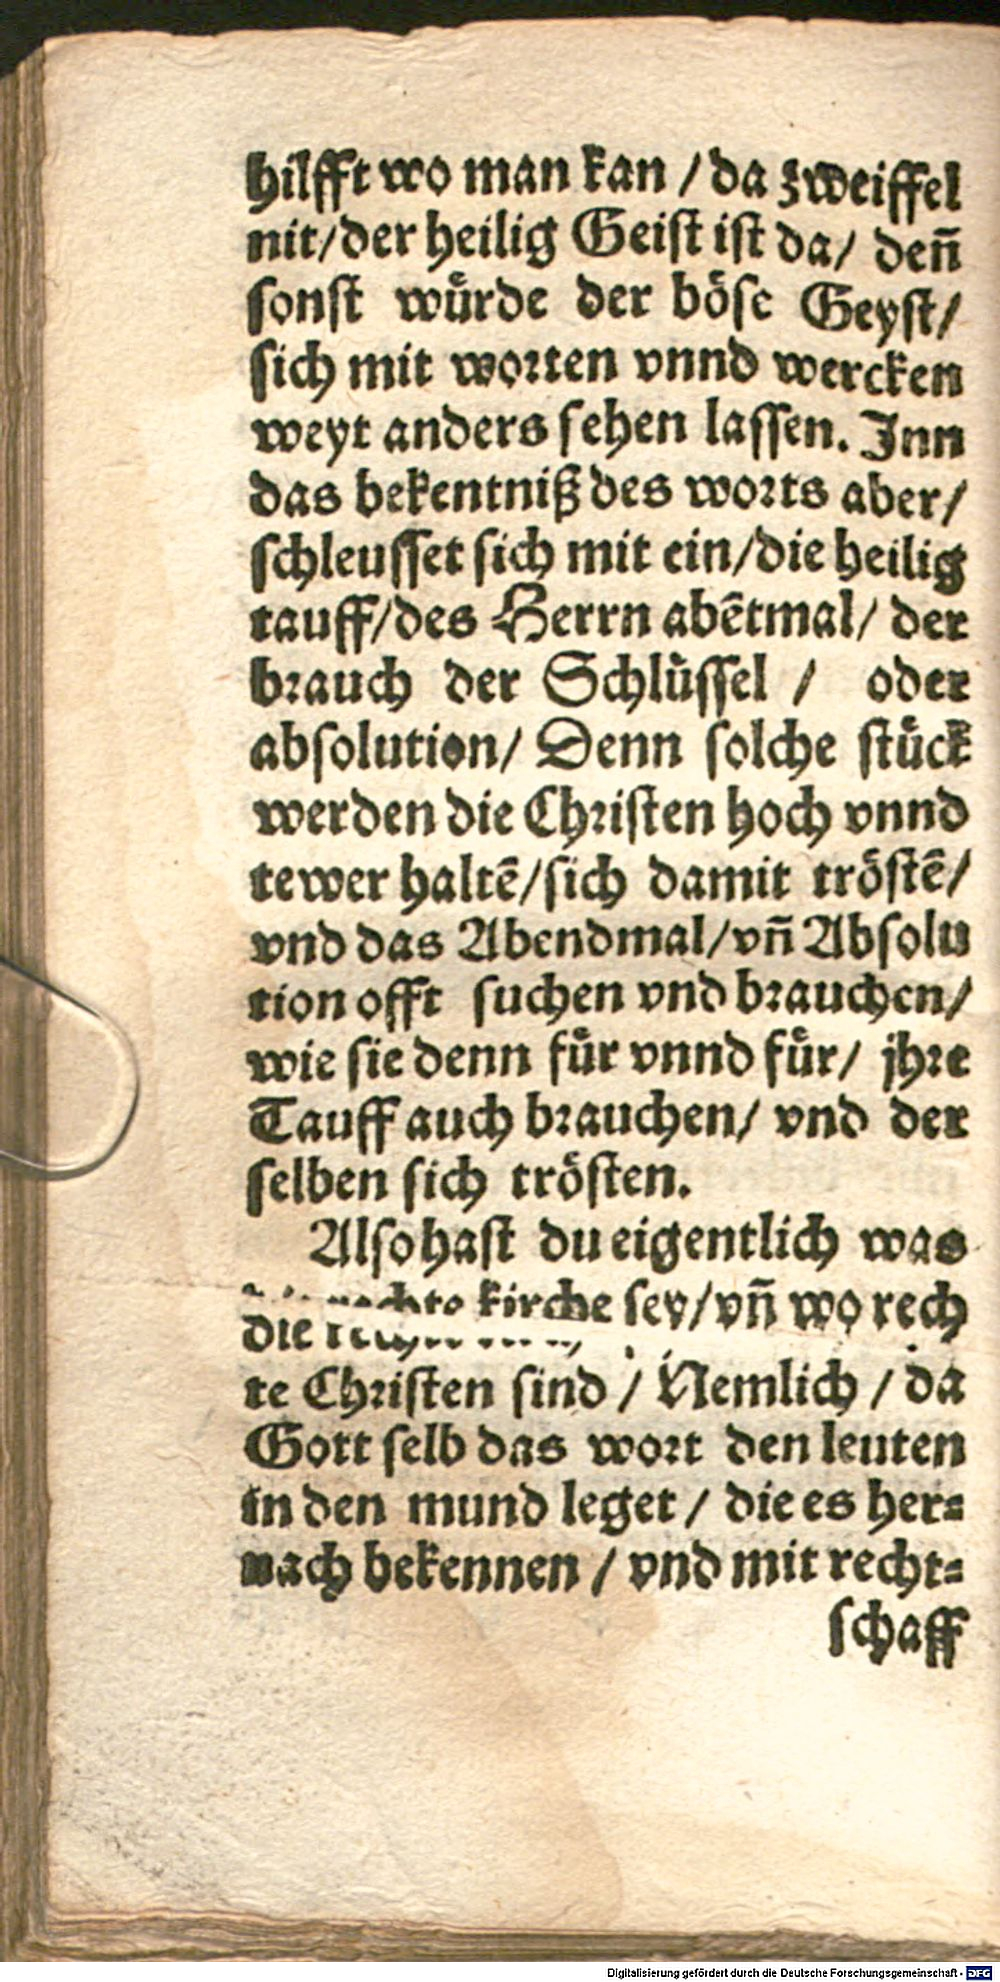 hilfft wo man kan / da zweiffel
nit/der heilig Geist ist da/ deñ
sonst wuͤrde der boͤse Geyst/
sich mit worten vnnd wercken
weyt anders sehen lassen. Inn
das bekentniß des worts aber/
schleusset sich mit ein/die heilig
tauff/des Herrn abẽtmal/ der
brauch der Schluͤssel / oder
absolution/ Denn solche stuͤck
werden die Christen hoch vnnd
tewer haltẽ/sich damit troͤstẽ/
vnd das Abendmal/vñ Absolu
tion offt suchen vnd brauchen/
wie sie denn fuͤr vnnd fuͤr/ jhre
Tauff auch brauchen/ vnd der
selben sich troͤsten.
Also hast du eigentlich was
die rechte kirche sey/vñ wo rech
te Christen sind / Nemlich / da
Gott selb das wort den leuten
in den mund leget / die es her⸗
nach bekennen / vnd mit recht⸗
schaff
Digitalisierung gefördert durch die Deutsche Forschungsgemeinschaft - DFG